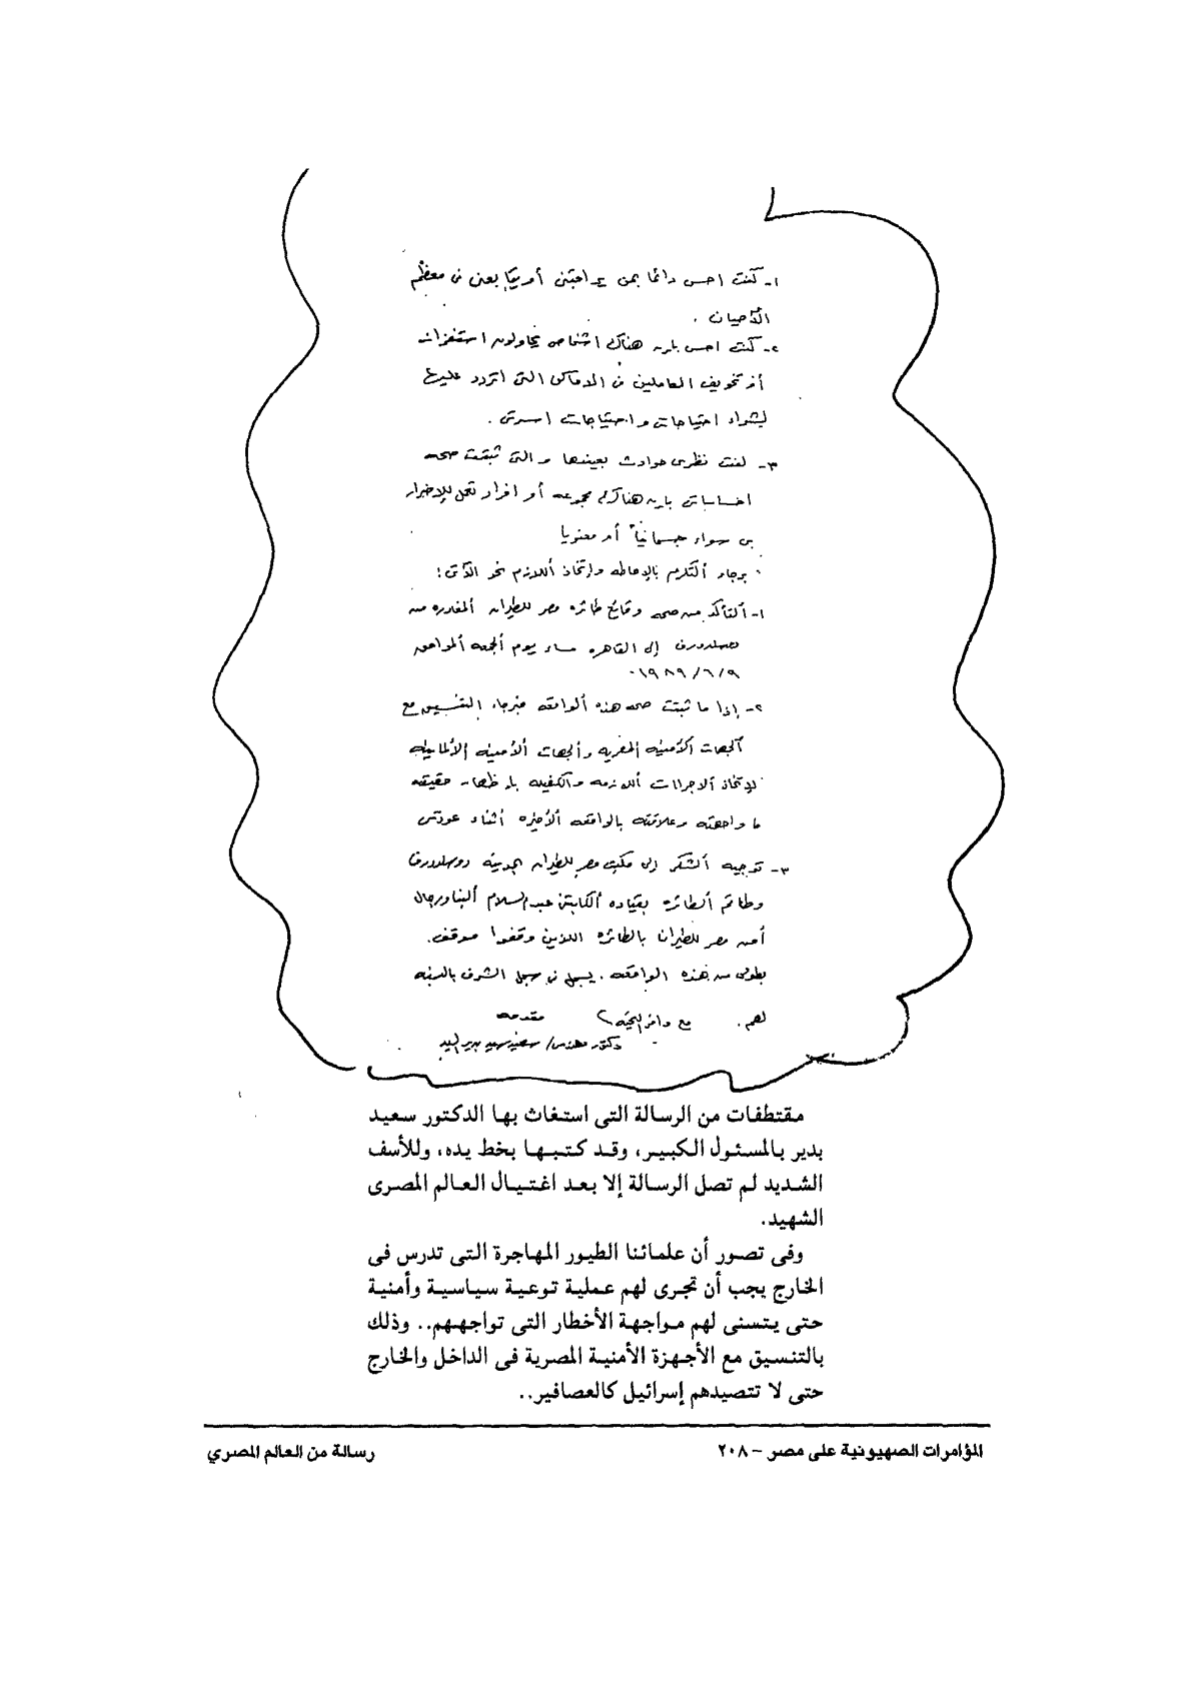 ١- كنت احس دائما بمن يراقبنى أو يتابعنى فى معظم
الأحيان .
٢- كنت احس بأن هناك اشخاص يحاولون استفزازى
أو تخويف العاملين فى الاماكن التى اتردد عليها
لشراء احتياجاتى واحتياجات اسرتى .
٣- لفت نظرى حوادث بعينها والتى ثبتت صحه
احساساتى بان هناك مجموعه أو افراد تعمل للإضرار
بى سواء جسمانياً أو معنويا
برجاء التكرم بالإحاطه وإتخاذ أللازم نحو الآتى :
١- ألتأكد من صحه وقائع طائره مصر للطيران ألمغادره من
دوسلدورف إلى القاهره مساء يوم ألجمعه ألموافق
١٩٨٩/٦/٩ .
٢- إذا ما ثبتت صحه هذه ألواقعه فبرجاء التنسيق مع
ألجهات ألأمنيه المصريه وألجهات ألأمنيه الألمانيه
لإتخاذ ألاجراات أللازمه والكفيله بإظهار حقيقه
ما واجهته وعلاقته بالواقعه ألأخيره أثناء عودتى
٣- توجيه ألشكر إلى مكتب مصر للطيران بمدينه دوسلدورف
وطاقم ألطائره بقياده ألكابتن عبد السلام ألبنا ورجال
أمن مصر للطيران بالطائره اللذين وقفوا موقف
بطولى من هذه الواقعه . يسجل فى سجل الشرف بالنسبه
لهم . مع وافر التحيه مقدمه
دكتور مهندس/ سعيد سيد بدير السيد
مقتطفات من الرسالة التى استغاث بها الدكتور سعيد
بدير بالمسئول الكبير، وقد كتبها بخط يده، وللأسف
الشديد لم تصل الرسالة إلا بعد اغتيال العالم المصرى
الشهيد.
وفى تصور أن علمائنا الطيور المهاجرة التى تدرس فى
الخارج يجب أن تجرى لهم عملية توعية سياسية وأمنية
حتى يتسنى لهم مواجهة الأخطار التى تواجههم.. وذلك
بالتنسيق مع الأجهزة الأمنية المصرية فى الداخل والخارج
حتى لا تتصيدهم إسرائيل كالعصافير..
المؤامرات الصهيونية على مصر – ٢٠٨
رسالة من العالم المصري